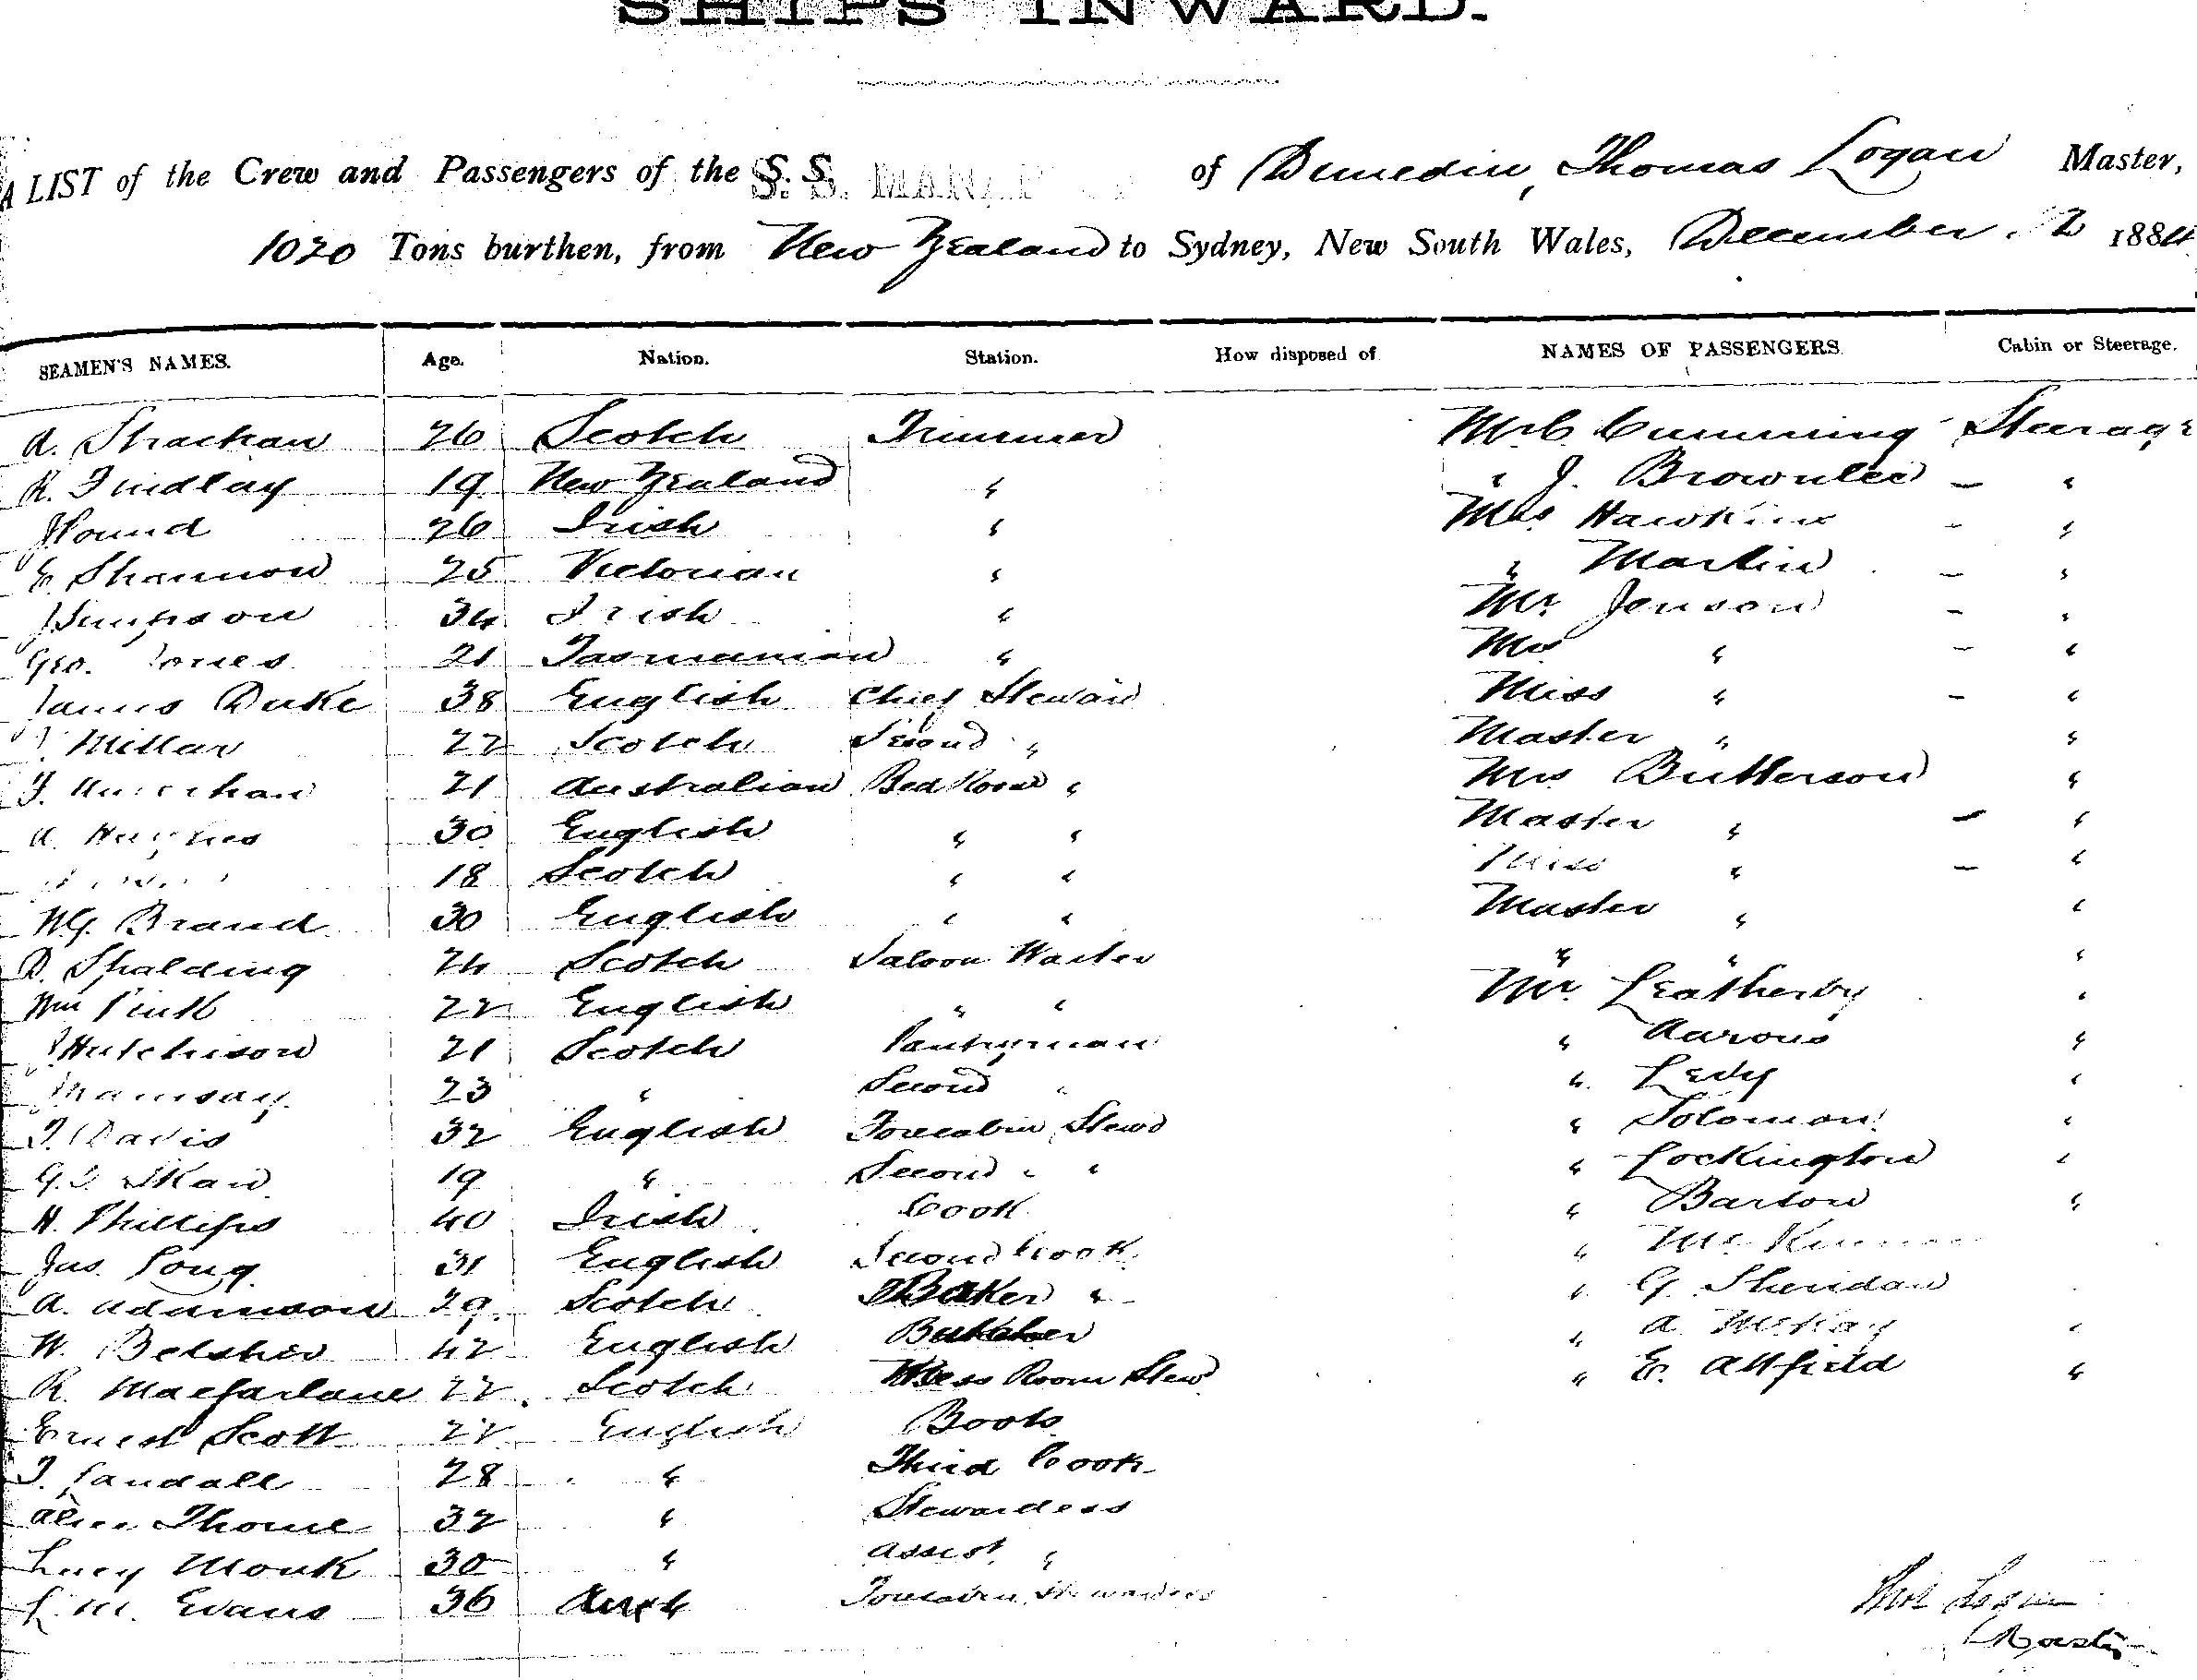 SHIPS INWARD.
A LIST of the Crew and Passengers of the S.S. S. S. of Dunedin, Thomas Logan Master,
1020 Tons burthen, from New Zealand to Sydney, New South Wales, December 2 1884
SEAMEN'S NAMES. Age. Nation. Station. How disposed of NAMES OF PASSENGERS. Cabin or Steerage.
A. Strachan 26 Scotch Trimmer Mr C Cumming Steerage
R. Findlay 19 New Zealand " " J. Brownlee - "
Hound 26 Irish " Mrs Hawkins - "
E. Shannon 25 Victorian " " Martin - "
Simpson 34 Irish " Mr Jenson - "
Geo. Jones 21 Tasmanian " Mrs " - "
James Duke 38 English Chief Steward Miss " - "
Millar 22 Scotch Second " Master " "
21 Australian Bed Room " Mrs Butterson "
A. Hughes 30 English " " Master " - "
18 Scotch " " Miss " - "
W.G. Brand 30 English " " Master " "
D. Spalding 24 Scotch Saloon Waiter " " "
Wm Pink 22 English " " Mr. Leatherby "
Hutchison 21 Scotch Pantryman " Aarons "
Ramsay 23 " Second " " Levy "
T. Davis 32 English Forecabin Stewd " Solomon "
G.T. Skan 19 " Second " " " Lockington "
H. Phillips 40 Irish Cook " Barton "
Jas. Long 31 English Second Cook "
A. Adamson 29 Scotch Baker " " G. Sheridan
W. Belsher 42 English Butcher " A. McKay "
R. Macfarlane 22 Scotch Mess Room Stewd " E. Allfield "
Ernest Scott 22 English Boots
T. Landall 28 " " Third Cook
Alice Thorne 32 " Stewardess
Lucy Monk 30 " Assist. "
L. M. Evans 36 Forecabin Stewardess
Thos Logan
Master